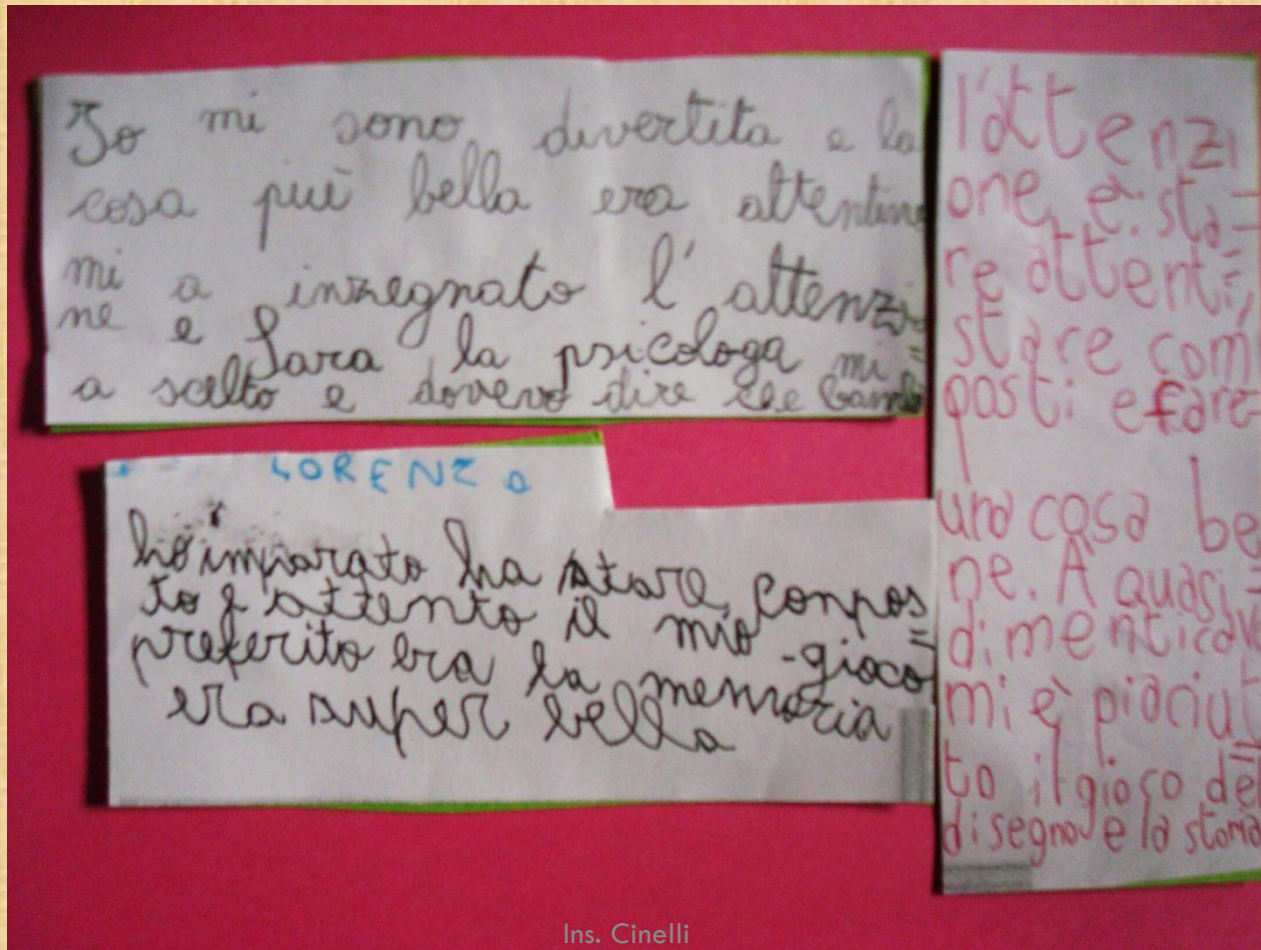 Io mi sono divertita e la
cosa più bella era attentino
mi a inzegnato l' attenzio
ne e Sara la psicologa mi =
a scelto e dovevo dire che
LORENZO
ho imparato ha stare conpos
to e attento il mio =gioco
preferito era la memoria
era super bella
l'attenzi
one, è. sta=
re attenti,
stare com
posti e fare
una cosa be
ne. A quasi=
dimenticavo
mi è piaciut
to il gioco del
disegno e la storia
Ins. Cinelli